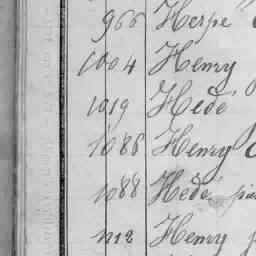 966 Herpé
1004 Henry
1019 Hédé
1086 Henry
1088 Hédé
1112 Henry